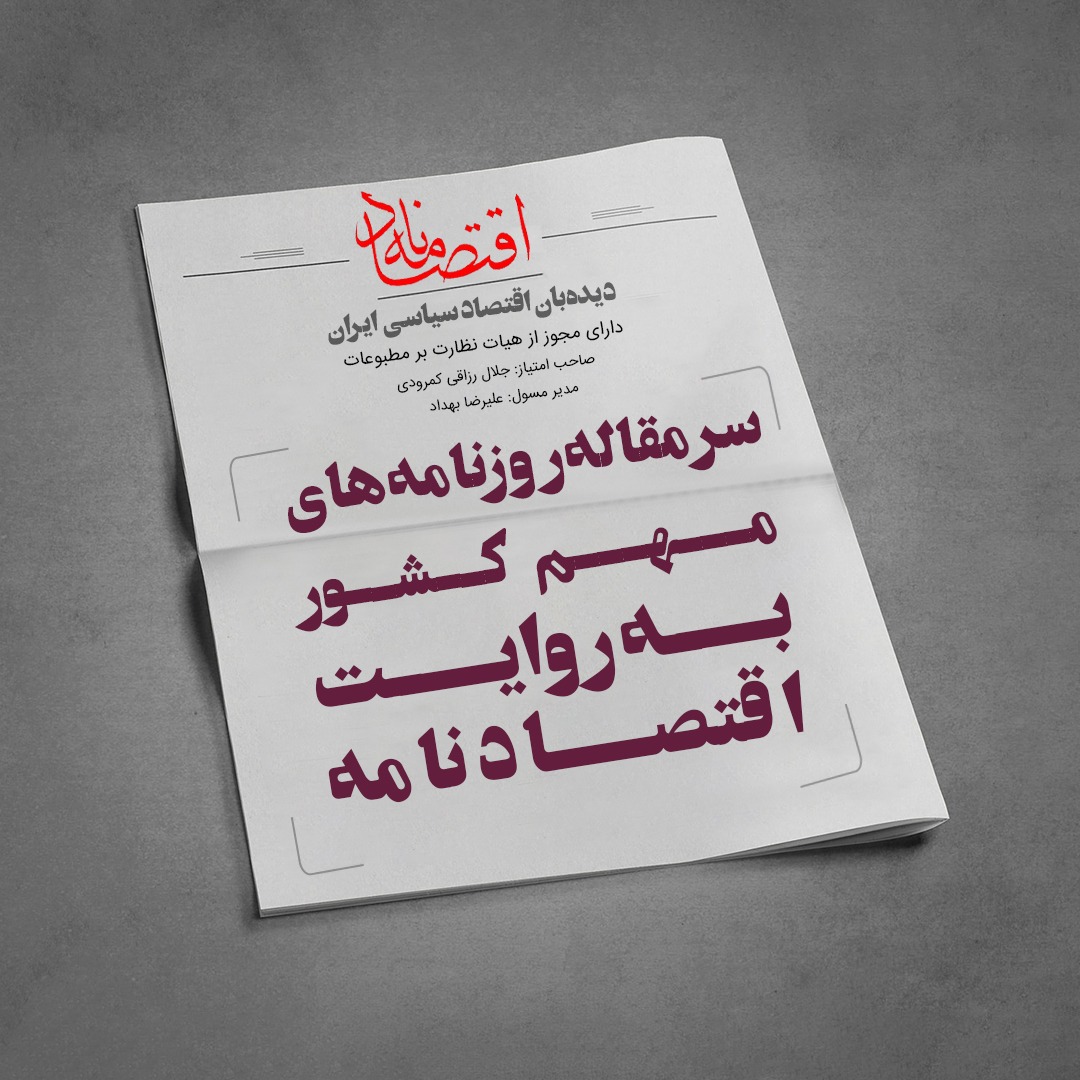 اقتصادنامه
دیده‌بان اقتصاد سیاسی ایران
دارای مجوز از هیات نظارت بر مطبوعات
صاحب امتیاز: جلال رزاقی کمرودی
مدیر مسول: علیرضا بهداد
سرمقاله روزنامه‌های
مهم کشور
به روایت
اقتصادنامه